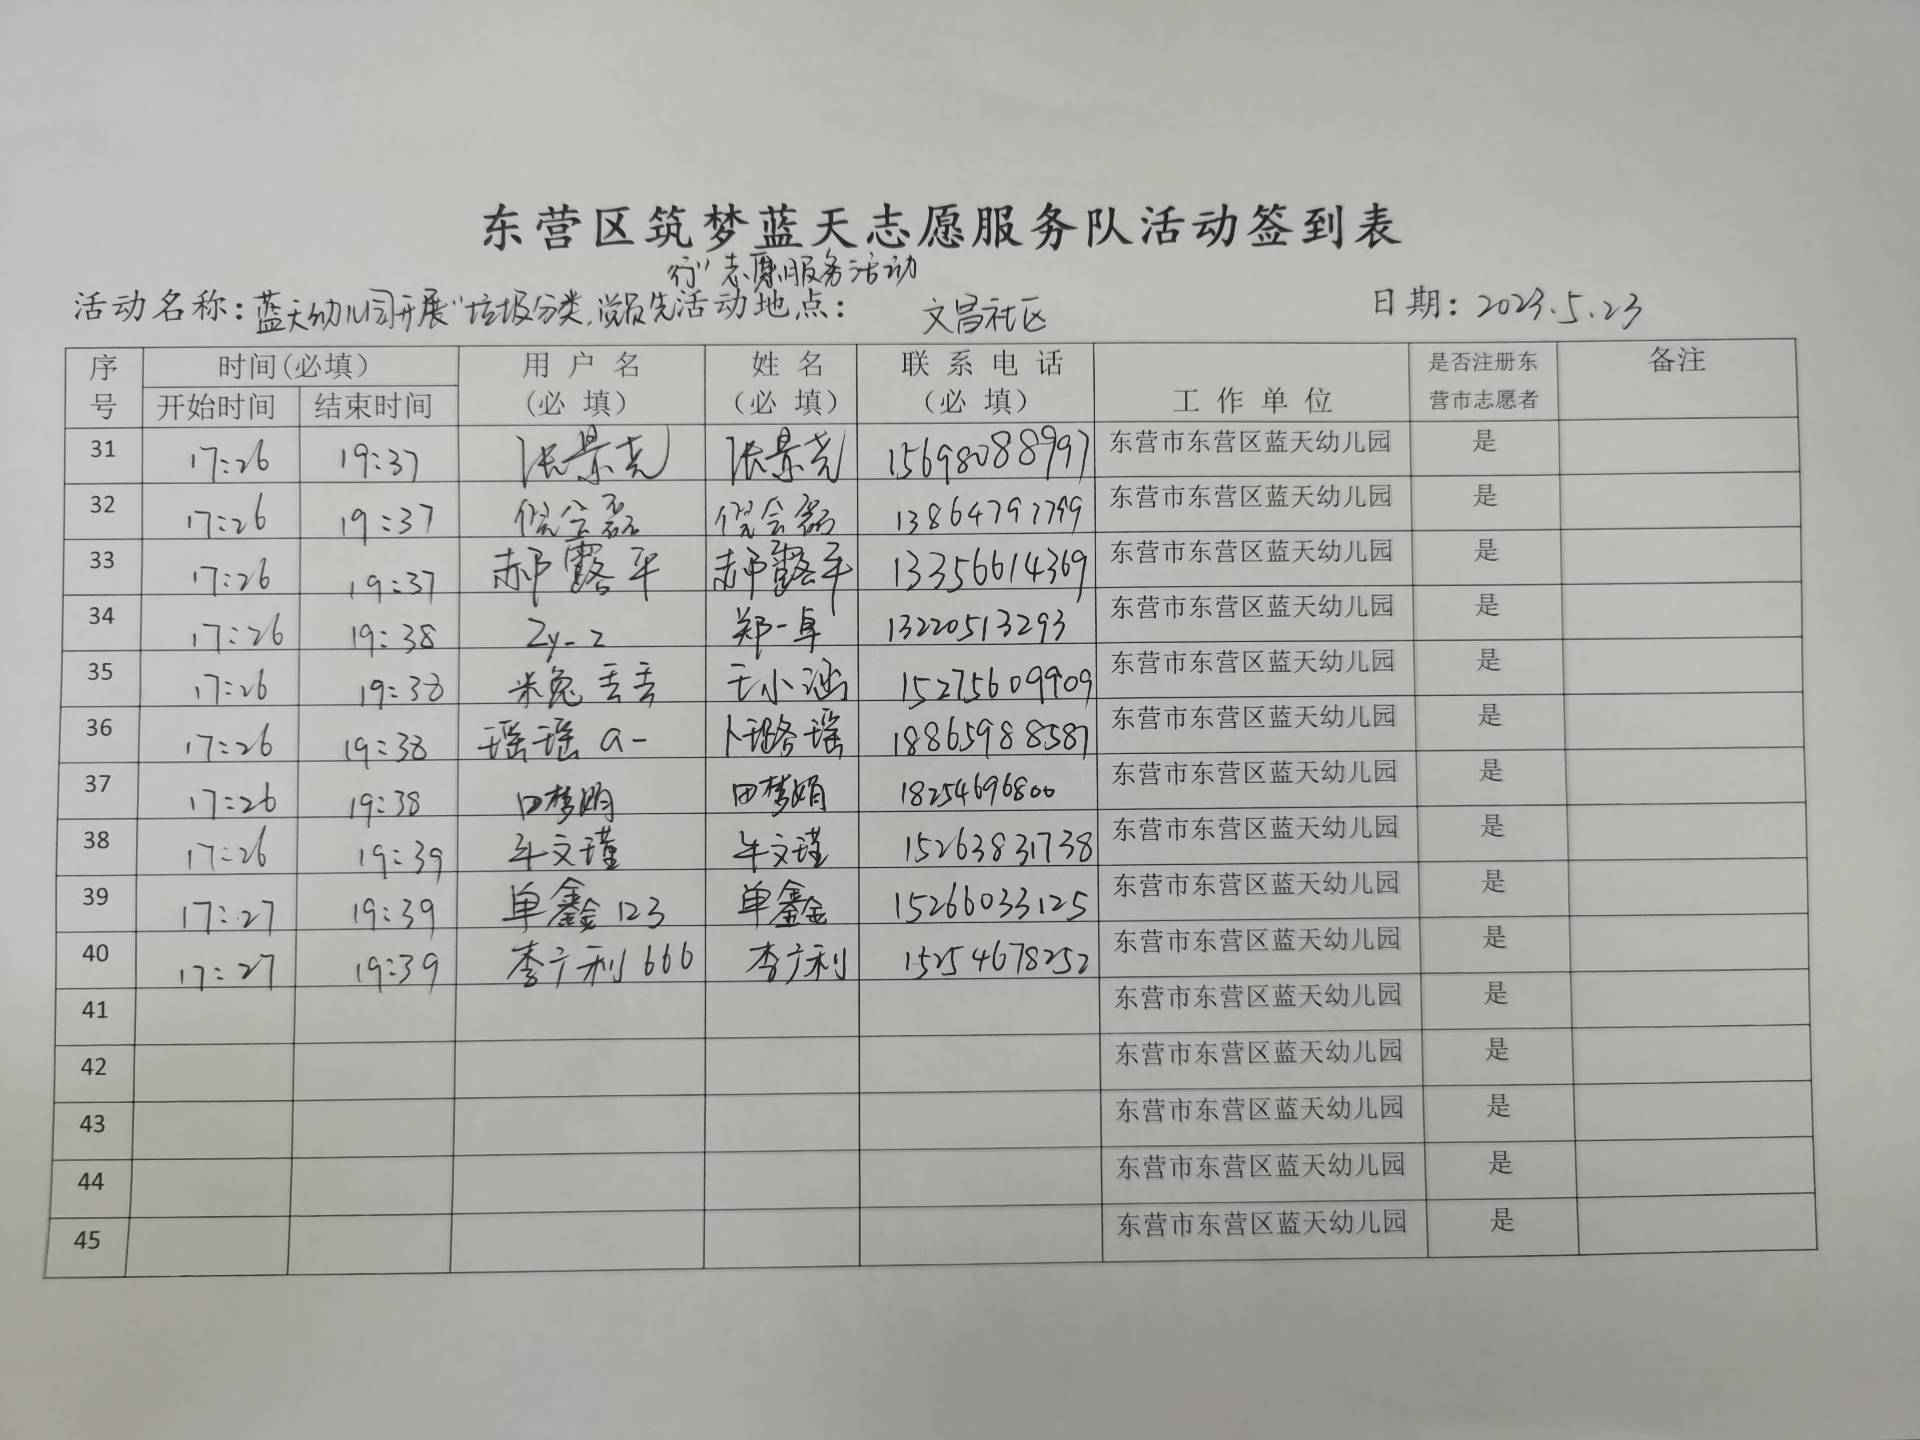 东营区筑梦蓝天志愿服务队活动签到表
行"志愿服务活动
活动名称：蓝天幼儿园开展"垃圾分类，党员先 活动地点： 文昌社区 日期：2023.5.23
序号 时间(必填) 用户名(必填) 姓名(必填) 联系电话(必填) 工作单位 是否注册东营市志愿者 备注
开始时间 结束时间
31 17:26 19:37 张景尧 张景尧 15698088997 东营市东营区蓝天幼儿园 是
32 17:26 19:37 倪会磊 倪会磊 13864797799 东营市东营区蓝天幼儿园 是
33 17:26 19:37 郝露平 郝露平 13356614369 东营市东营区蓝天幼儿园 是
34 17:26 19:38 Zy_z 郑一卓 13220513293 东营市东营区蓝天幼儿园 是
35 17:26 19:38 米兔 王小涵 15275609909 东营市东营区蓝天幼儿园 是
36 17:26 19:38 瑶瑶a- 卜璐瑶 18865988587 东营市东营区蓝天幼儿园 是
37 17:26 19:38 田梦娟 田梦娟 18254696800 东营市东营区蓝天幼儿园 是
38 17:26 19:39 牛文瑾 牛文瑾 15263831738 东营市东营区蓝天幼儿园 是
39 17:27 19:39 单鑫123 单鑫 15266033125 东营市东营区蓝天幼儿园 是
40 17:27 19:39 李广利666 李广利 15254678252 东营市东营区蓝天幼儿园 是
41 东营市东营区蓝天幼儿园 是
42 东营市东营区蓝天幼儿园 是
43 东营市东营区蓝天幼儿园 是
44 东营市东营区蓝天幼儿园 是
45 东营市东营区蓝天幼儿园 是